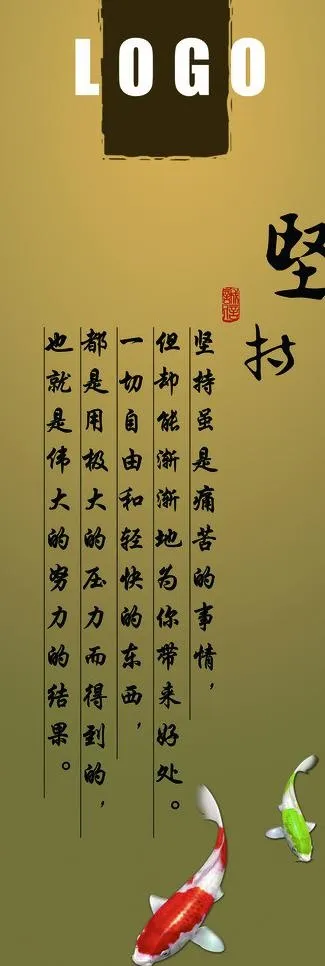 LOGO
坚持
坚持虽是痛苦的事情，
但却能渐渐地为你带来好处。
一切自由和轻快的东西，
都是用极大的压力而得到的，
也就是伟大的努力的结果。